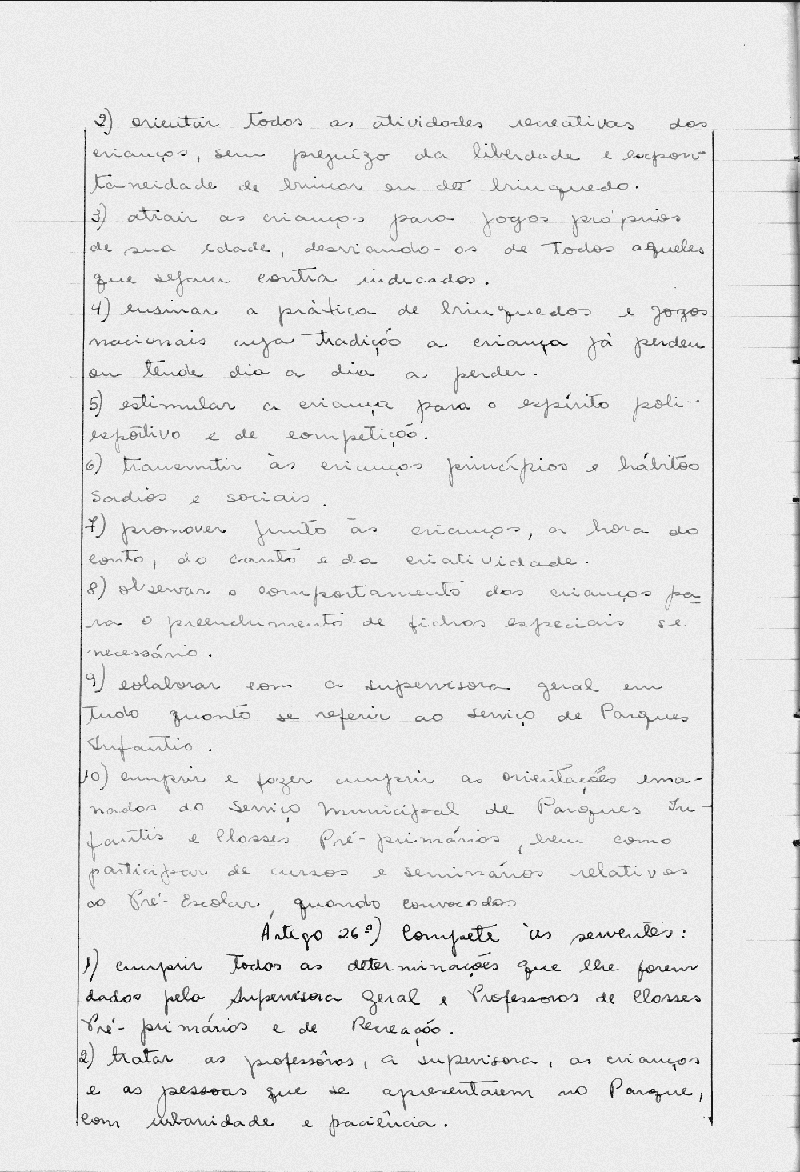 2) orientar todas as atividades recreativas das
crianças, sem prejuízo da liberdade e espon-
taneidade de brincar ou de brinquedo.
3) atrair as crianças para jogos próprios
de sua idade, desviando-os de todos aqueles
que sejam contra indicados.
4) ensinar a prática de brinquedos e jogos
nacionais cuja tradição a criança já perdeu
ou tende dia a dia a perder.
5) estimular a criança para o espírito poli-
esportivo e de competição.
6) transmitir às crianças princípios e hábitos
sadios e sociais.
7) promover junto às crianças, a hora do
conto, do canto e da criatividade.
8) observar o comportamento das crianças pa-
ra o preenchimento de fichas especiais se
necessário.
9) colaborar com a supervisora geral em
tudo quanto se referir ao serviço de Parques
Infantis.
10) cumprir e fazer cumprir as orientações ema-
nadas do Serviço Municipal de Parques In-
fantis e Classes Pré-primários, bem como
participar de cursos e seminários relativos
ao Pré-Escolar, quando convocados
Artigo 26º) Compete às serventes:
1) cumprir todas as determinações que lhe forem
dadas pela Supervisora Geral e Professoras de Classes
Pré-primários e de Recreação.
2) tratar as professôras, a supervisora, as crianças
e as pessoas que se apresentarem no Parque,
com urbanidade e paciência.